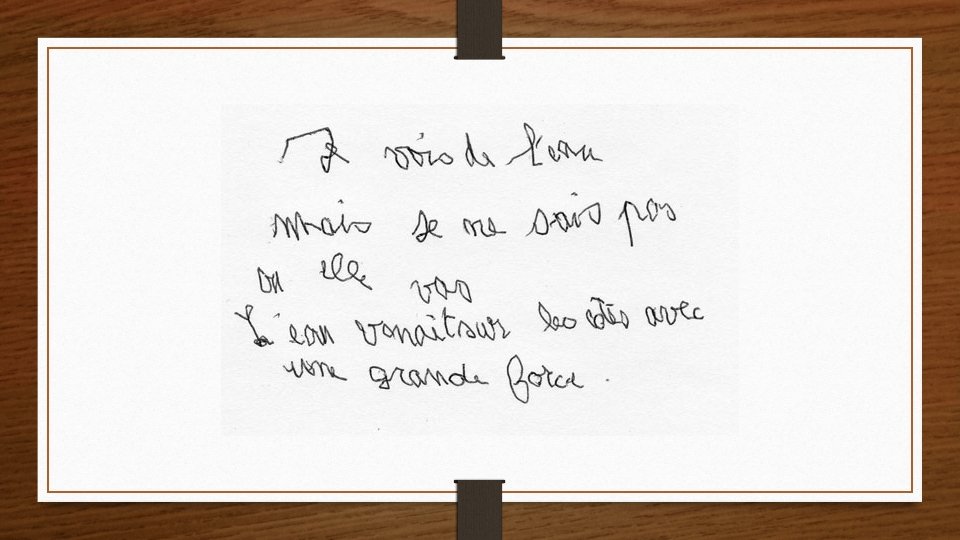 Je vois de l'eau
mais je ne sais pas
ou elle vas
L'eau venait sur les côtés avec
une grande force.